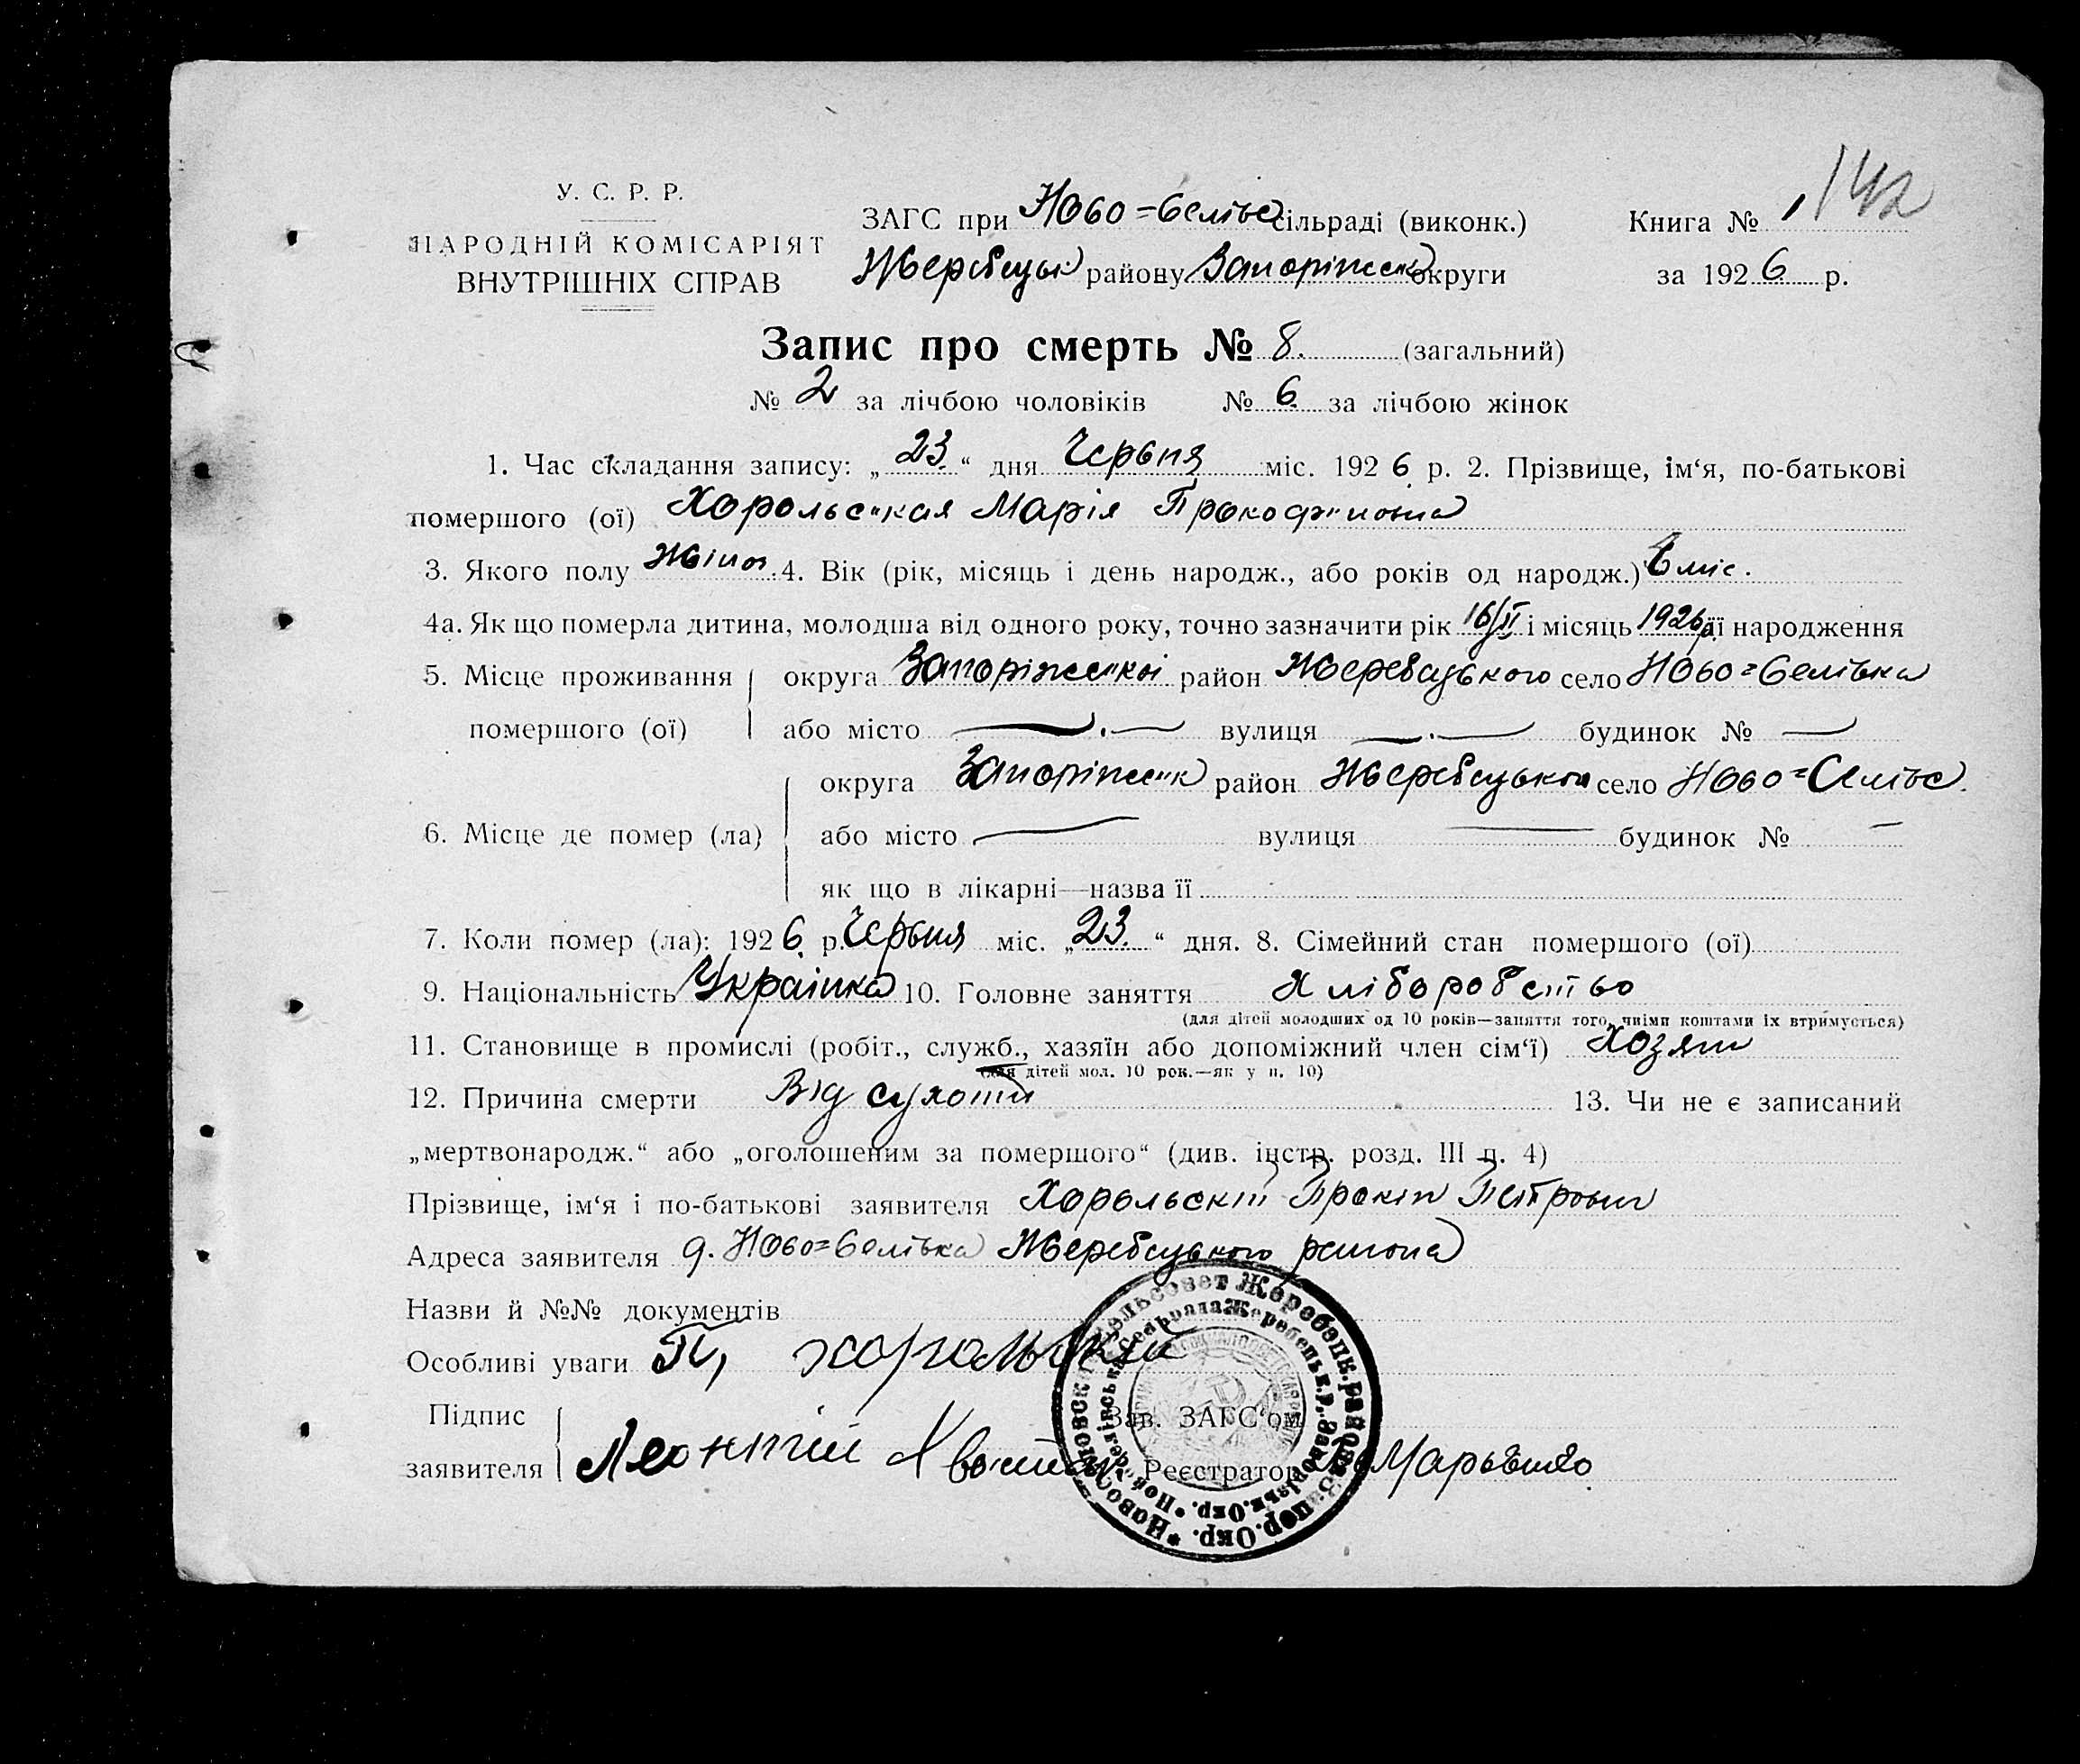 142
У. С. Р. Р.
НАРОДНІЙ КОМІСАРІЯТ
ВНУТРІШНІХ СПРАВ
ЗАГС при Ново=Селівс сільраді (виконк.)
Книга № 1
Жеребецьк району Запоріжськ округи
за 1926 р.
Запис про смерть № 8. (загальний)
№ 2 за лічбою чоловіків № 6 за лічбою жінок
1. Час складання запису: „23“ дня Червня міс. 1926 р. 2. Прізвище, ім‘я, по-батькові
помершого (ої) Хорольськая Марія Прокофівна
3. Якого полу Жіноч. 4. Вік (рік, місяць і день народж., або років од народж.) міс.
4а. Як що померла дитина, молодша від одного року, точно зазначити рік 16/ІІ і місяць 1926р. її народження
5. Місце проживання округа Запоріжській район Жеребецького село Ново=Селівка
помершого (ої) або місто — . — вулиця — . — будинок № —
6. Місце де помер (ла) округа Запоріжськ район Жеребецьком село Ново=Селівс.
або місто — вулиця — будинок № —
як що в лікарні—назва її
7. Коли помер (ла): 1926 р. Червня міс. „23“ дня. 8. Сімейний стан помершого (ої)
9. Національність Українка 10. Головне заняття Хліборобство
(для дітей молодших од 10 років—заняття того, чиїми коштами їх втримується)
11. Становище в промислі (робіт., служб., хазяїн або допоміжний член сім‘ї) Хозяин
(для дітей мол. 10 рок.—як у п. 10)
12. Причина смерти Від сухоти 13. Чи не є записаний
„мертвонародж.“ або „оголошеним за помершого“ (див. інстр. розд. III п. 4)
Прізвище, ім‘я і по-батькові заявителя Хорольский Прокіп Петрович
Адреса заявителя д. Ново=Селівка Жеребецького района
Назви й №№ документів
Особливі уваги П, хорольский
Підпис
заявителя Леонтій
Зав. ЗАГС‘ом
Реєстратор
Новоселовск. сельсовет Жеребецк. района Запор. Окр.
Новоселівська сельрада Жеребецьк. р. Запорізьк. Окр.